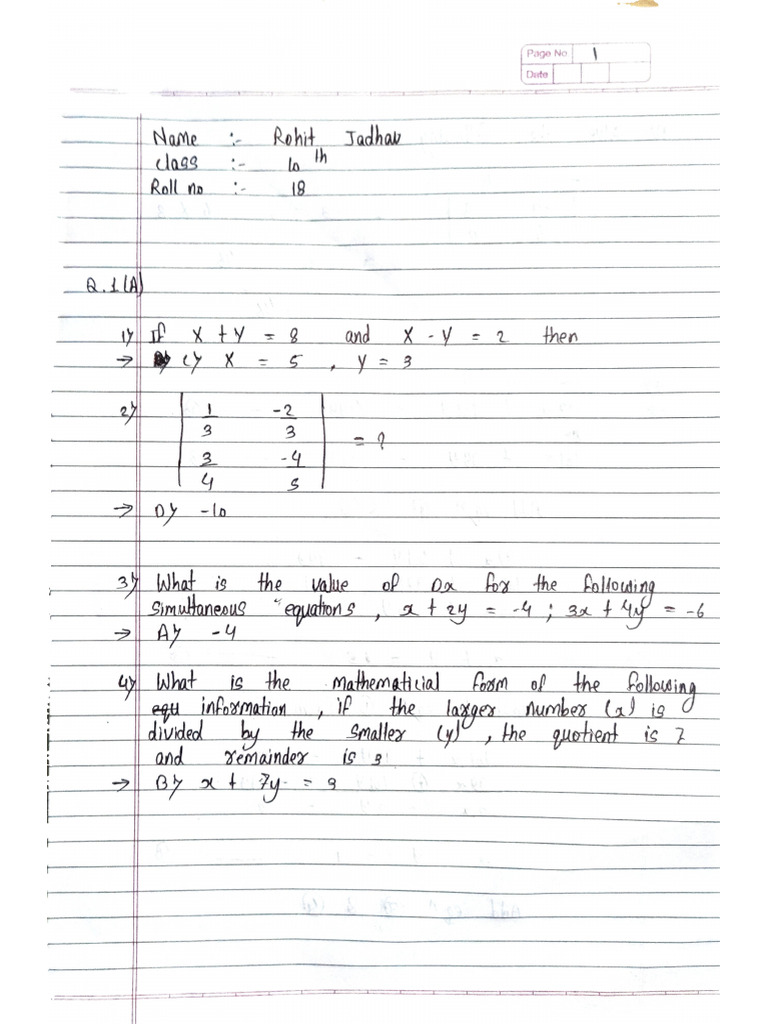 Page No 1
Date
Name :- Rohit Jadhav
class :- 10 th
Roll no :- 18
Q.1(A)
1) If X + Y = 8 and X - Y = 2 then
→ C) X = 5 , Y = 3
2) | 1/3 -2/3 |
| 3/4 -4/5 | = ?
→ D) -10
3) What is the value of Dx for the following
simultaneous equations , x + 2y = -4 ; 3x + 4y = -6
→ A) -4
4) What is the mathematicial form of the following
equ information , if the larger number (x) is
divided by the smaller (y) , the quotient is 7
and remainder is 9
→ B) x + 7y = 9